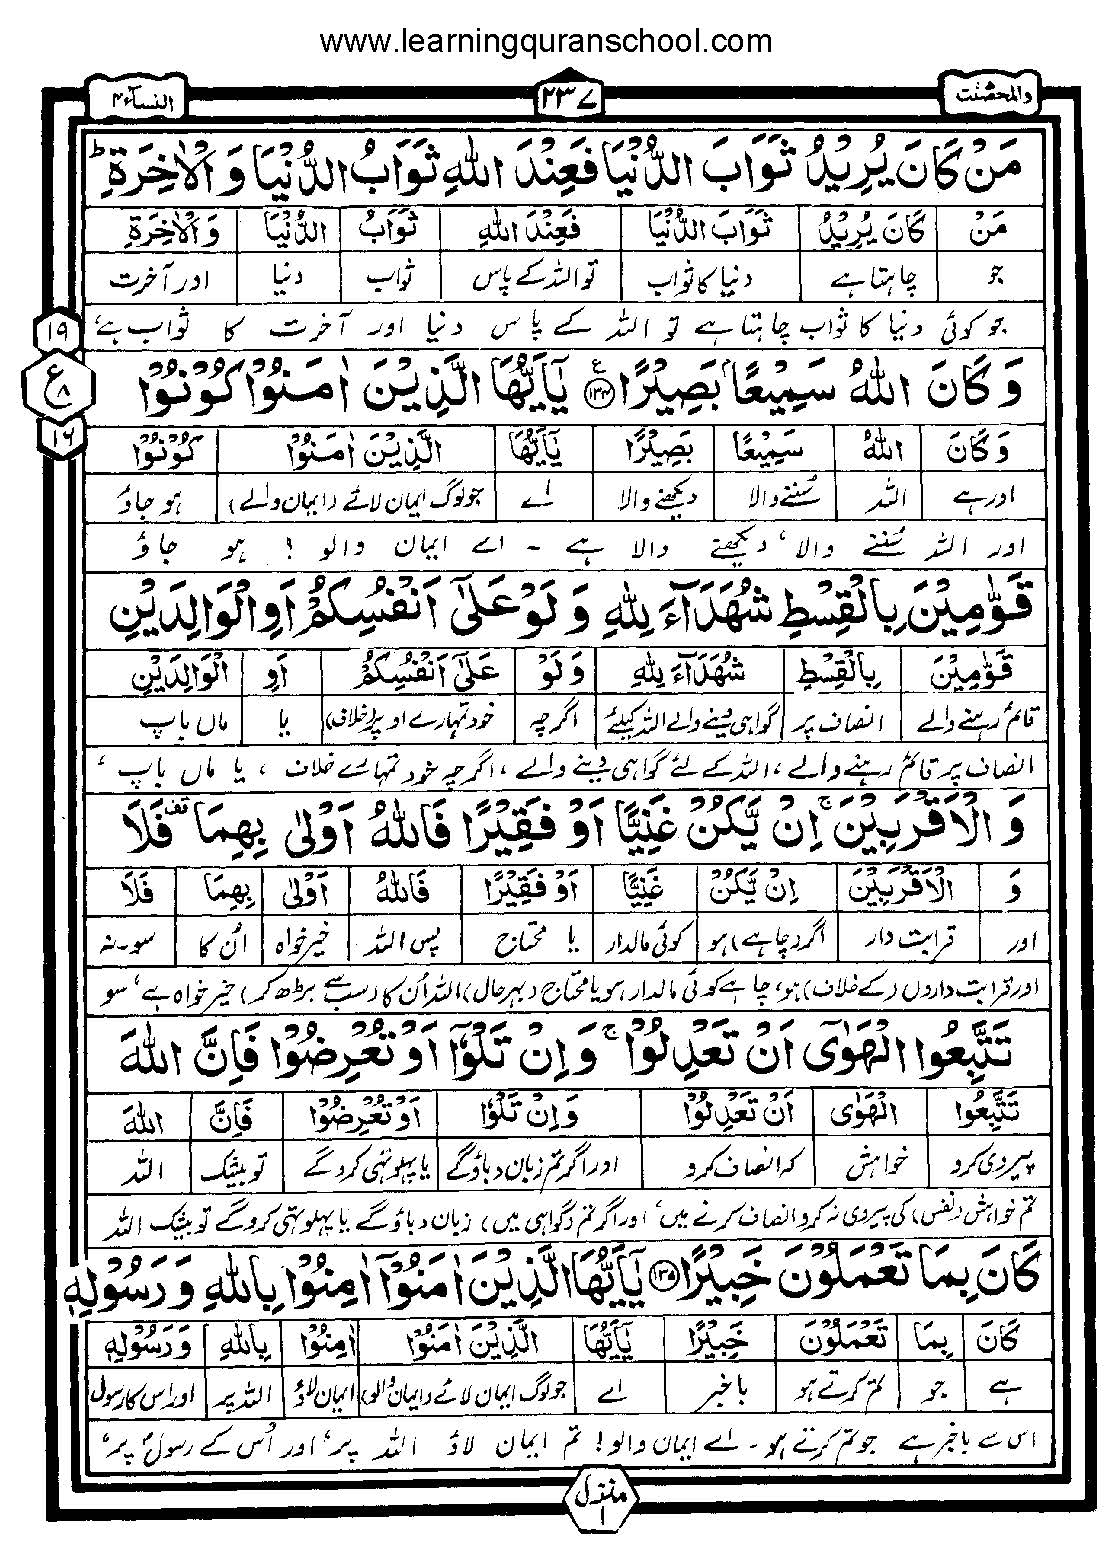 www.learningquranschool.com
والمحصنت ٢٣٧ النسآء ٤
مَنْ كَانَ يُرِيْدُ ثَوَابَ الدُّنْيَا فَعِنْدَ اللّٰهِ ثَوَابُ الدُّنْيَا وَ الْاٰخِرَةِ ؕ
مَنْ كَانَ يُرِيْدُ ثَوَابَ الدُّنْيَا فَعِنْدَ اللّٰهِ ثَوَابُ الدُّنْيَا وَ الْاٰخِرَةِ
جو چاہتا ہے دنیا کا ثواب تو اللہ کے پاس ثواب دنیا اور آخرت
جو کوئی دنیا کا ثواب چاہتا ہے تو اللہ کے پاس دنیا اور آخرت کا ثواب ہے،
١٩
ع ٨
١٦
وَ كَانَ اللّٰهُ سَمِيْعًۢا بَصِيْرًا ۧ﴿١٣٤﴾ يٰۤاَيُّهَا الَّذِيْنَ اٰمَنُوْا كُوْنُوْا
وَ كَانَ اللّٰهُ سَمِيْعًا بَصِيْرًا يٰۤاَيُّهَا الَّذِيْنَ اٰمَنُوْا كُوْنُوْا
اور ہے اللہ سُننے والا دیکھنے والا اے جو لوگ ایمان لائے (ایمان والے) ہو جاؤ
اور اللہ سُننے والا، دیکھنے والا ہے ۔ اے ایمان والو ! ہو جاؤ
قَوّٰمِيْنَ بِالْقِسْطِ شُهَدَآءَ لِلّٰهِ وَ لَوْ عَلٰۤى اَنْفُسِكُمْ اَوِ الْوَالِدَيْنِ
قَوّٰمِيْنَ بِالْقِسْطِ شُهَدَآءَ لِلّٰهِ وَ لَوْ عَلٰۤى اَنْفُسِكُمْ اَوِ الْوَالِدَيْنِ
قائم رہنے والے انصاف پر گواہی دینے والے اللہ کیلئے اگرچہ خود تمہارے اوپر (خلاف) یا ماں باپ
انصاف پر قائم رہنے والے، اللہ کے لئے گواہی دینے والے، اگرچہ خود تمہارے خلاف ، یا ماں باپ ،
وَ الْاَقْرَبِيْنَ ۚ اِنْ يَّكُنْ غَنِيًّا اَوْ فَقِيْرًا فَاللّٰهُ اَوْلٰى بِهِمَا فَلَا
وَ الْاَقْرَبِيْنَ اِنْ يَّكُنْ غَنِيًّا اَوْ فَقِيْرًا فَاللّٰهُ اَوْلٰى بِهِمَا فَلَا
اور قرابت دار اگر (چاہے) ہو کوئی مالدار یا محتاج پس اللہ خیر خواہ اُن کا سو۔ نہ
اور قرابت داروں (کے خلاف) ہو، چاہے کوئی مالدار ہو یا محتاج (بہرحال) اللہ اُن کا (سب سے بڑھ کر) خیر خواہ ہے، سو
تَتَّبِعُوا الْهَوٰۤى اَنْ تَعْدِلُوْا ۚ وَ اِنْ تَلْوٗۤا اَوْ تُعْرِضُوْا فَاِنَّ اللّٰهَ
تَتَّبِعُوا الْهَوٰۤى اَنْ تَعْدِلُوْا وَ اِنْ تَلْوٗا اَوْ تُعْرِضُوْا فَاِنَّ اللّٰهَ
پیروی کرو خواہش کہ انصاف کرو اور اگر تم زبان دباؤ گے یا پہلوتہی کرو گے تو بیشک اللہ
تم خواہش (نفس) کی پیروی نہ کرو انصاف کرنے میں، اور اگر تم (گواہی میں) زبان دباؤ گے یا پہلوتہی کرو گے تو بیشک اللہ
كَانَ بِمَا تَعْمَلُوْنَ خَبِيْرًا ﴿١٣٥﴾ يٰۤاَيُّهَا الَّذِيْنَ اٰمَنُوْۤا اٰمِنُوْا بِاللّٰهِ وَ رَسُوْلِهٖ
كَانَ بِمَا تَعْمَلُوْنَ خَبِيْرًا يٰۤاَيُّهَا الَّذِيْنَ اٰمَنُوْا اٰمِنُوْا بِاللّٰهِ وَ رَسُوْلِهٖ
ہے جو تم کرتے ہو باخبر اے جو لوگ ایمان لائے (ایمان والو) ایمان لاؤ اللہ پر اور اس کا رسول
اس سے باخبر ہے جو تم کرتے ہو ۔ اے ایمان والو! تم ایمان لاؤ اللہ پر، اور اُس کے رسول پر،
منزل ١